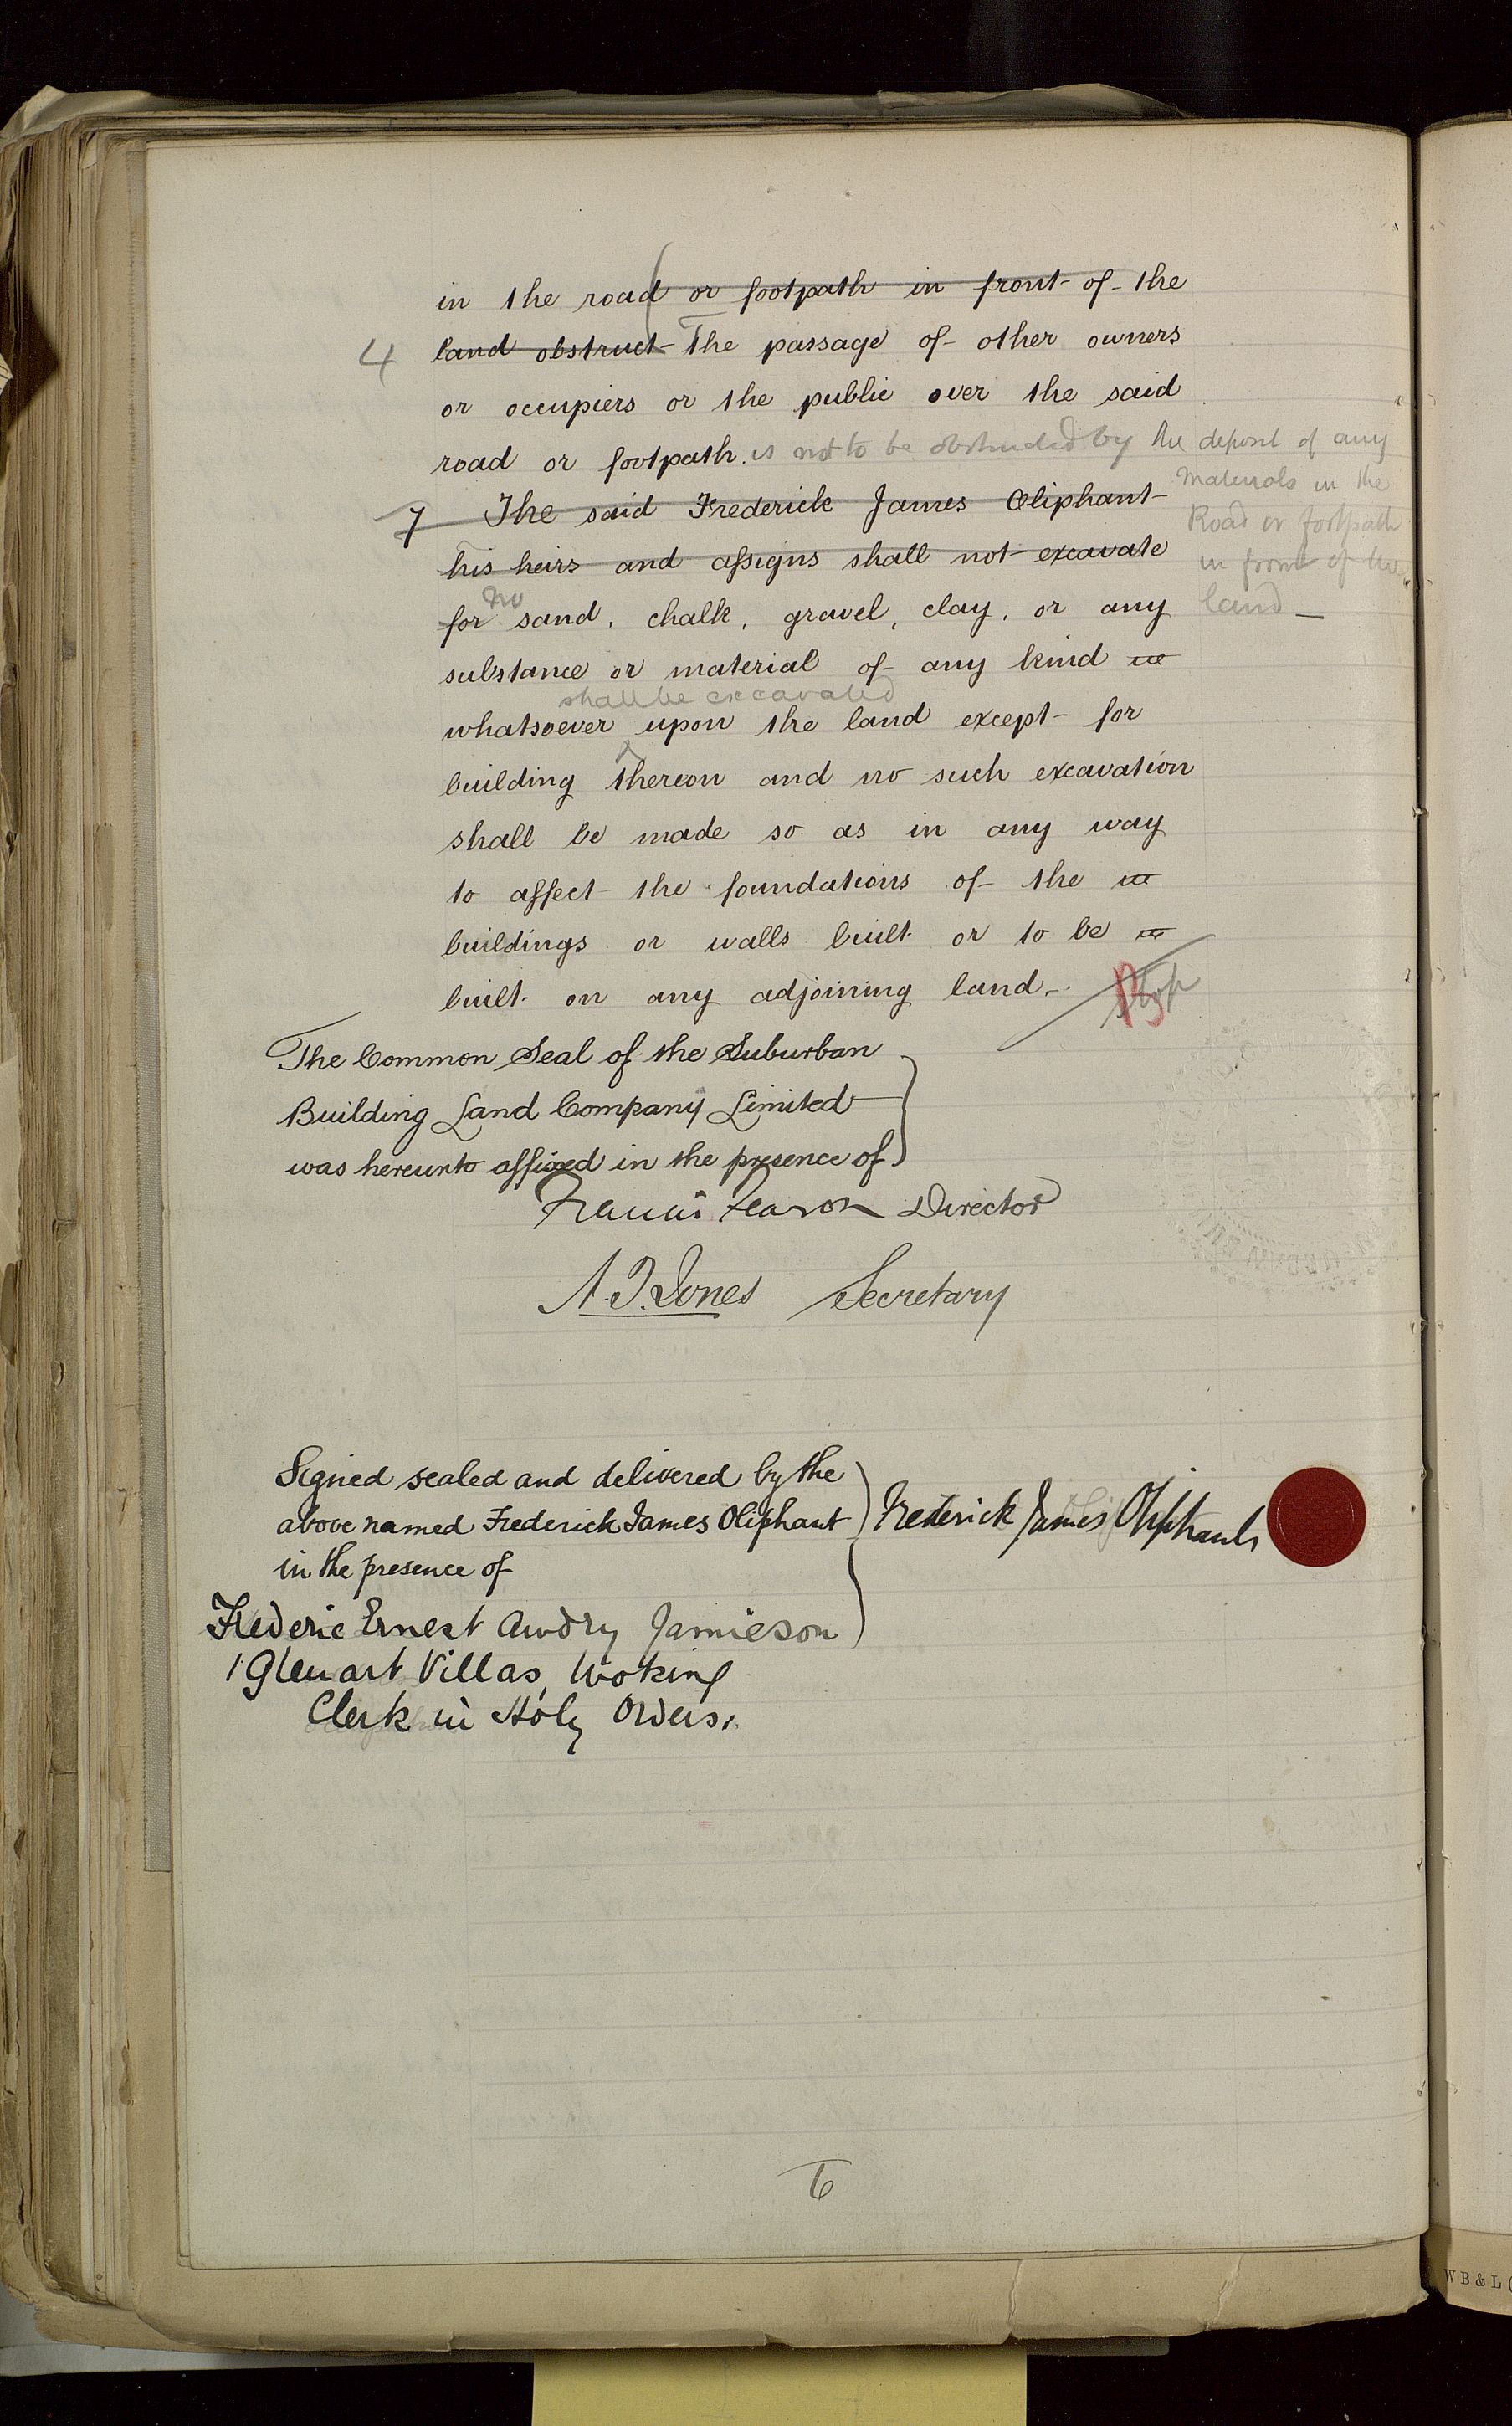 in the road or footpath in front of the
4 land obstruct The passage of other owners
or occupiers or the public over the said
road or footpath. is not to be obstructed by the deposit of any
materials in the
Road or footpath
in front of the
land
7 The said Frederick James Oliphant
his heirs and assigns shall not excavate
no
for sand, chalk, gravel, clay, or any
substance or material of any kind
shall be excavated
whatsoever upon the land except for
building thereon and no such excavation
shall be made so as in any way
to affect the foundations of the
buildings or walls built or to be
built on any adjoining land. Stop
The Common Seal of the Suburban
Building Land Company Limited
was hereunto affixed in the presence of
Francis Pearson Director
A. T. Jones Secretary
Signed sealed and delivered by the
above named Frederick James Oliphant
in the presence of
Frederick James Oliphant
Frederic Ernest Awdry Jamieson
1 Glenart Villas, Woking
Clerk in Holy Orders.
6
WB&L(